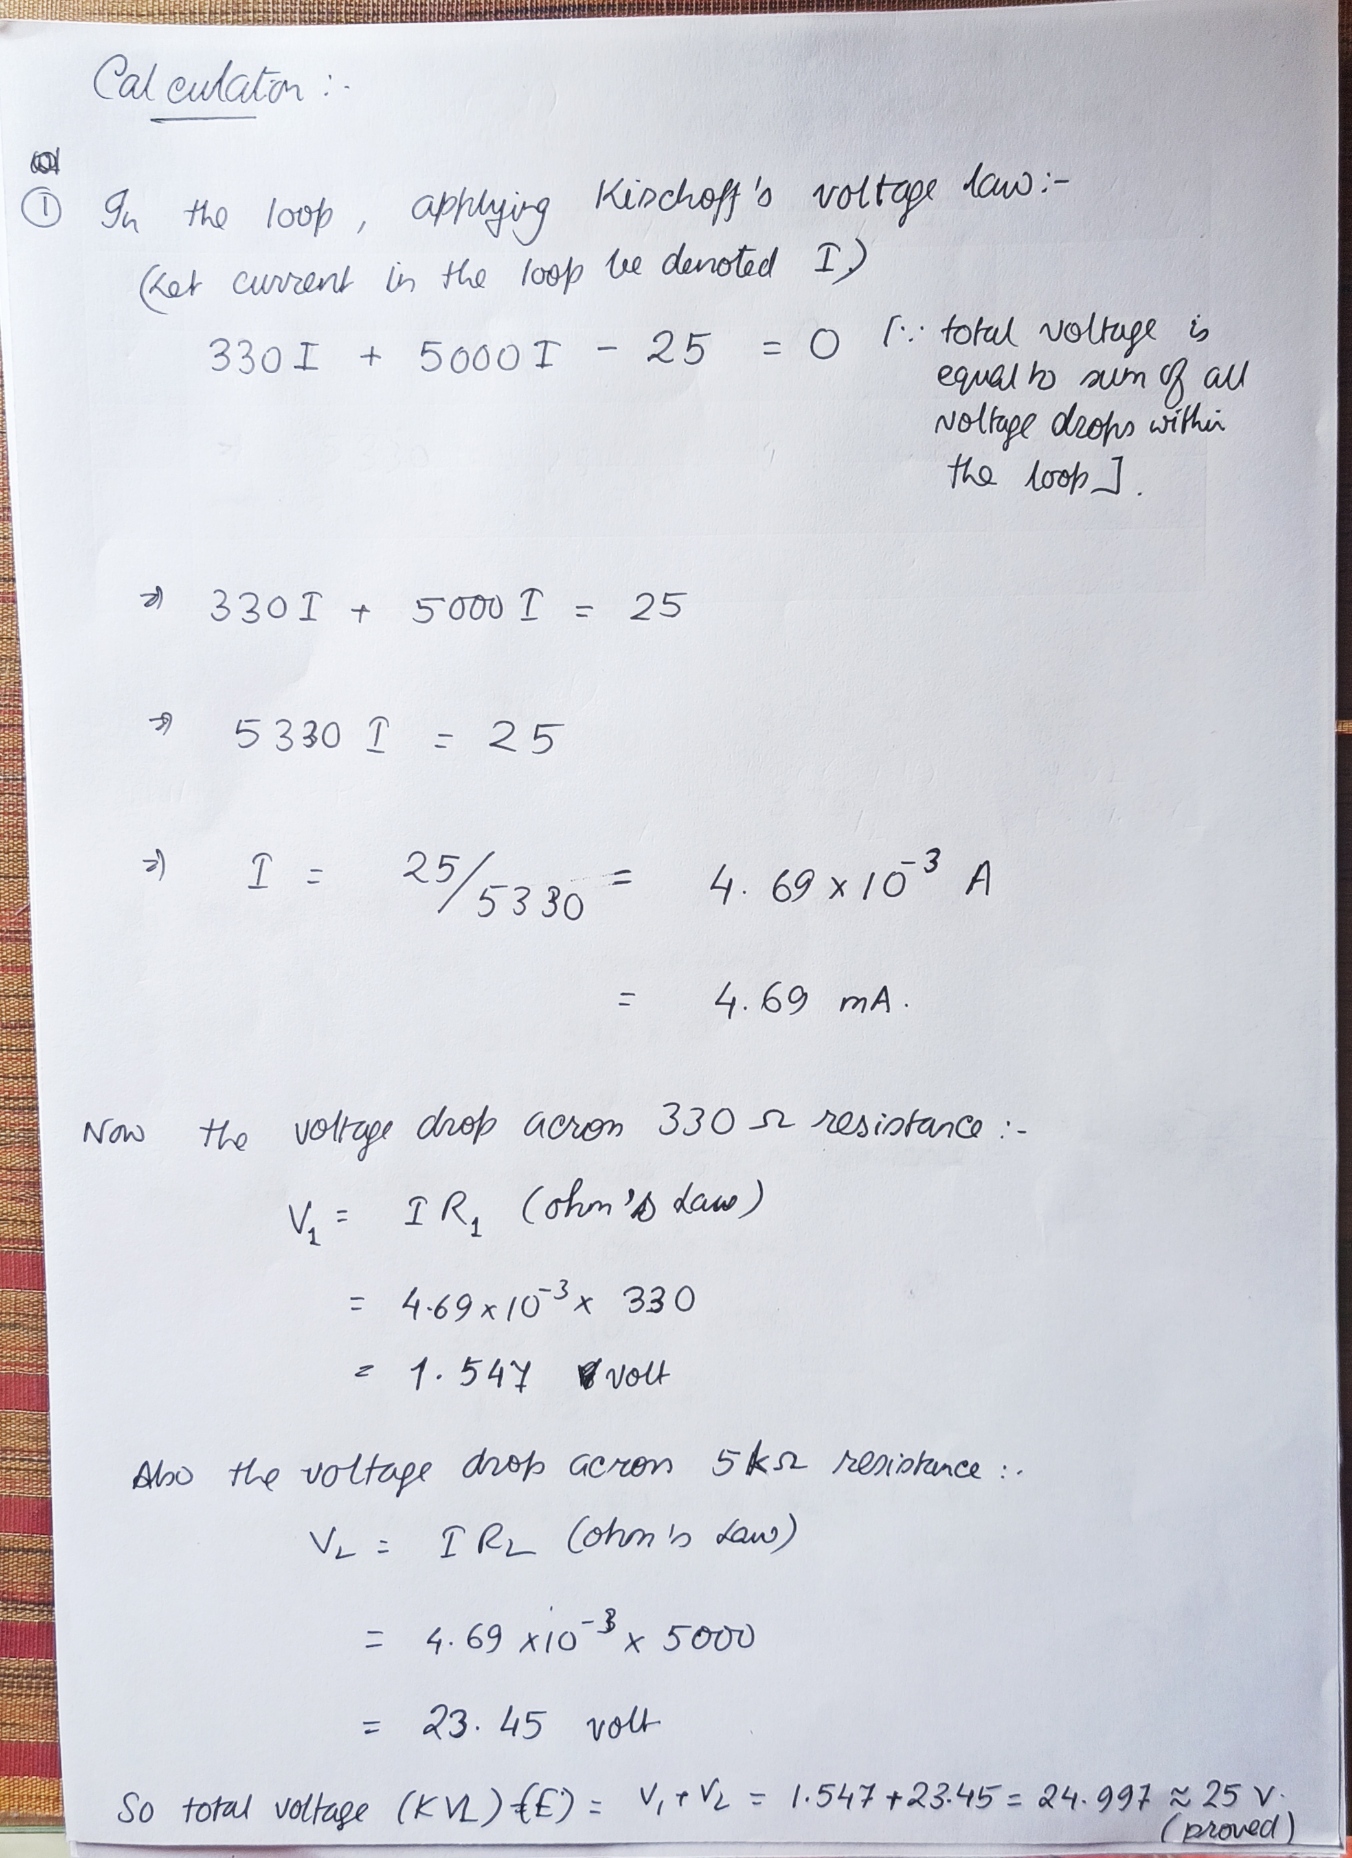 Calculaton :-
① In the loop, applying Kirchoff's voltage law :-
(Let current in the loop be denoted I)
330 I + 5000 I - 25 = 0 [∵ total voltage is
equal to sum of all
voltage drops within
the loop].
⇒ 330 I + 5000 I = 25
⇒ 5330 I = 25
⇒ I = 25/5330 = 4.69 x 10⁻³ A
= 4.69 mA.
Now the voltage drop across 330 Ω resistance :-
V₁ = I R₁ (ohm's Law)
= 4.69 x 10⁻³ x 330
= 1.547 volt
Also the voltage drop across 5 kΩ resistance :-
V₂ = I R₂ (ohm's Law)
= 4.69 x 10⁻³ x 5000
= 23.45 volt
So total voltage (KVL) (E) = V₁ + V₂ = 1.547 + 23.45 = 24.997 ≈ 25 V.
(proved)